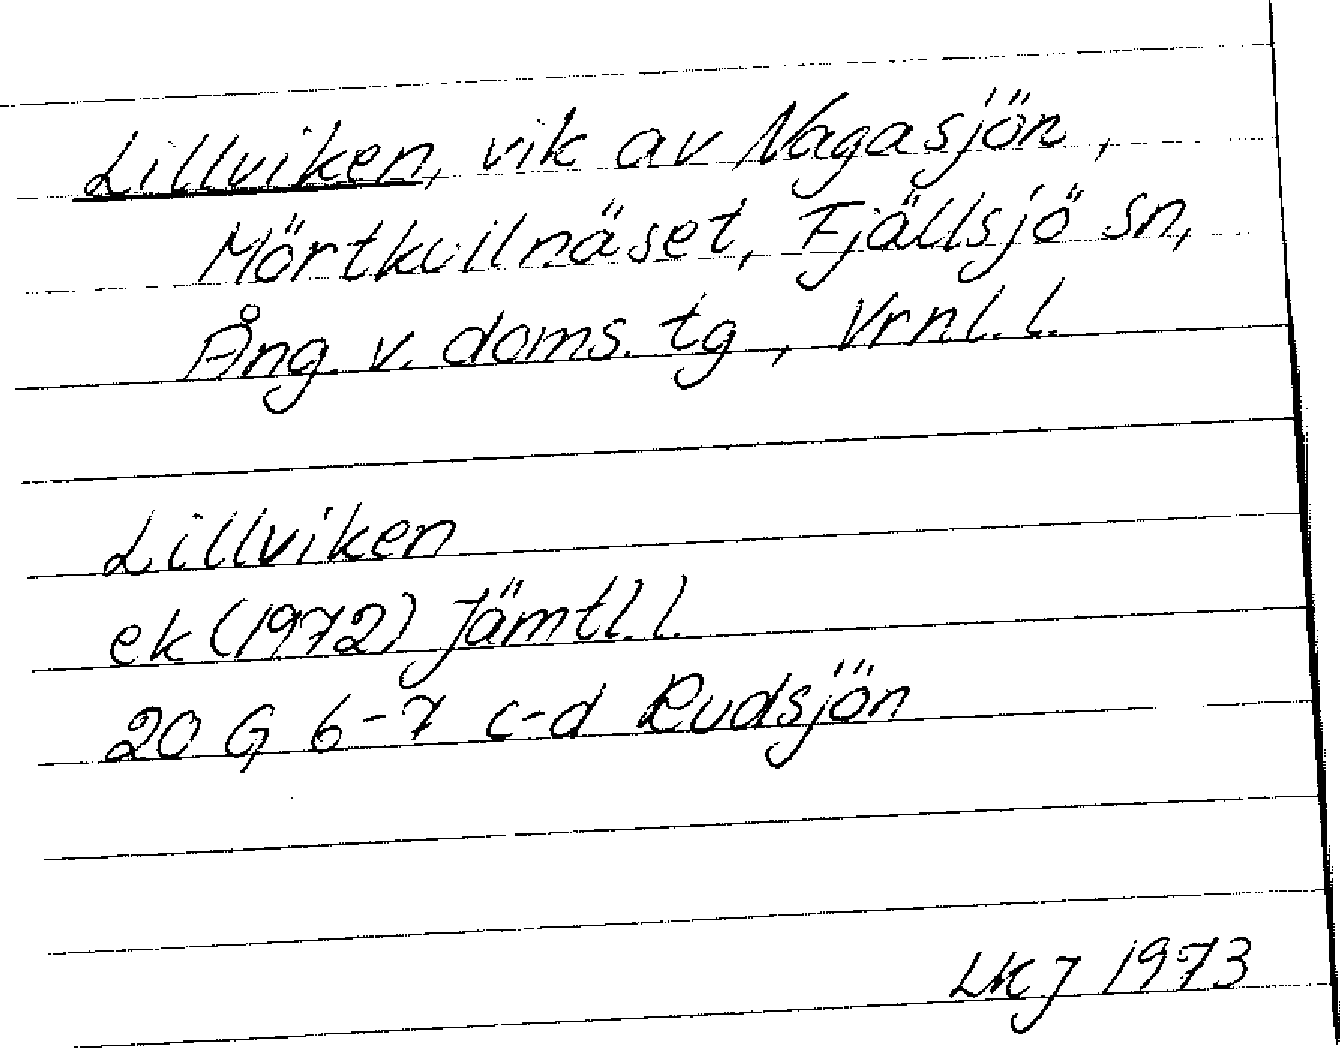 Lillviken, vik av Nagasjön,
Mörtkvilnäset, Fjällsjö sn,
Ång. v. doms. tg, Vrnl. l.
Lillviken
ek (1972) Jämtl. l.
20 G 6-7 c-d Rudsjön
LKJ 1973